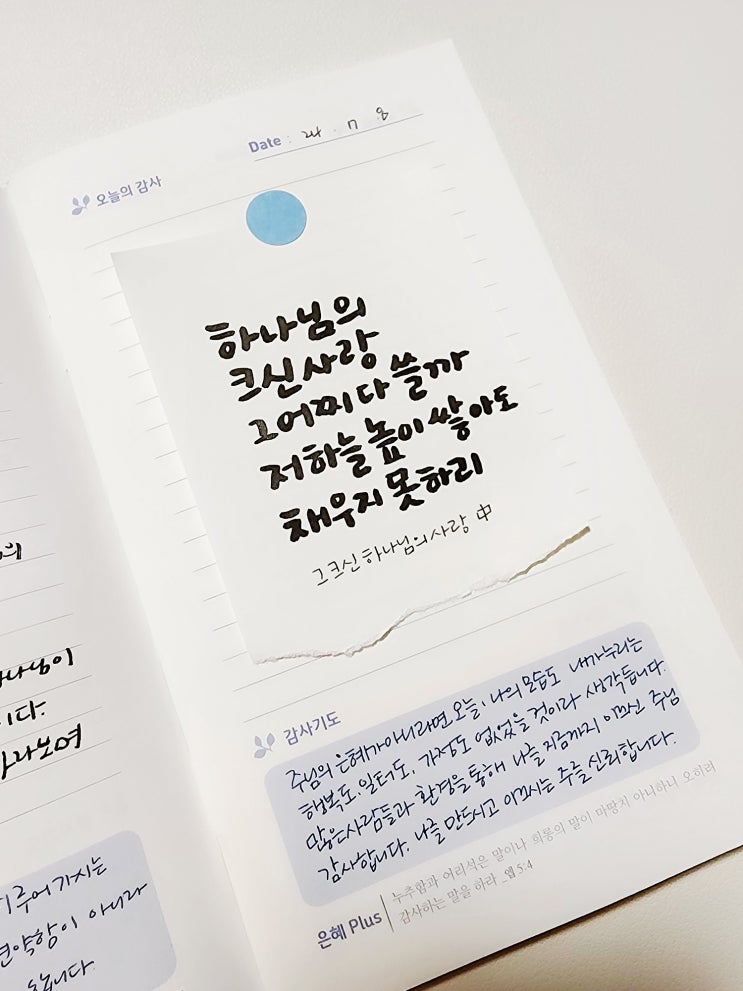 Date : 24 . 7 8
오늘의 감사
하나님의
크신 사랑
그 어찌 다 쓸까
저 하늘 높이 쌓아도
채우지 못하리
그 크신 하나님의 사랑 中
감사기도
주님의 은혜가 아니라면 오늘, 나의 모습도 내가 누리는
행복도, 일터도, 가정도 없었을 것이라 생각듭니다.
많은 사람들과 환경을 통해 나를 지금까지 이끄신 주님
감사합니다. 나를 만드시고 이끄시는 주를 신뢰합니다.
은혜 Plus
누추함과 어리석은 말이나 희롱의 말이 마땅치 아니하니 오히려
감사하는 말을 하라 _엡 5:4
나님이
이다.
바라보며
루어 가시는
연약함이 아니라